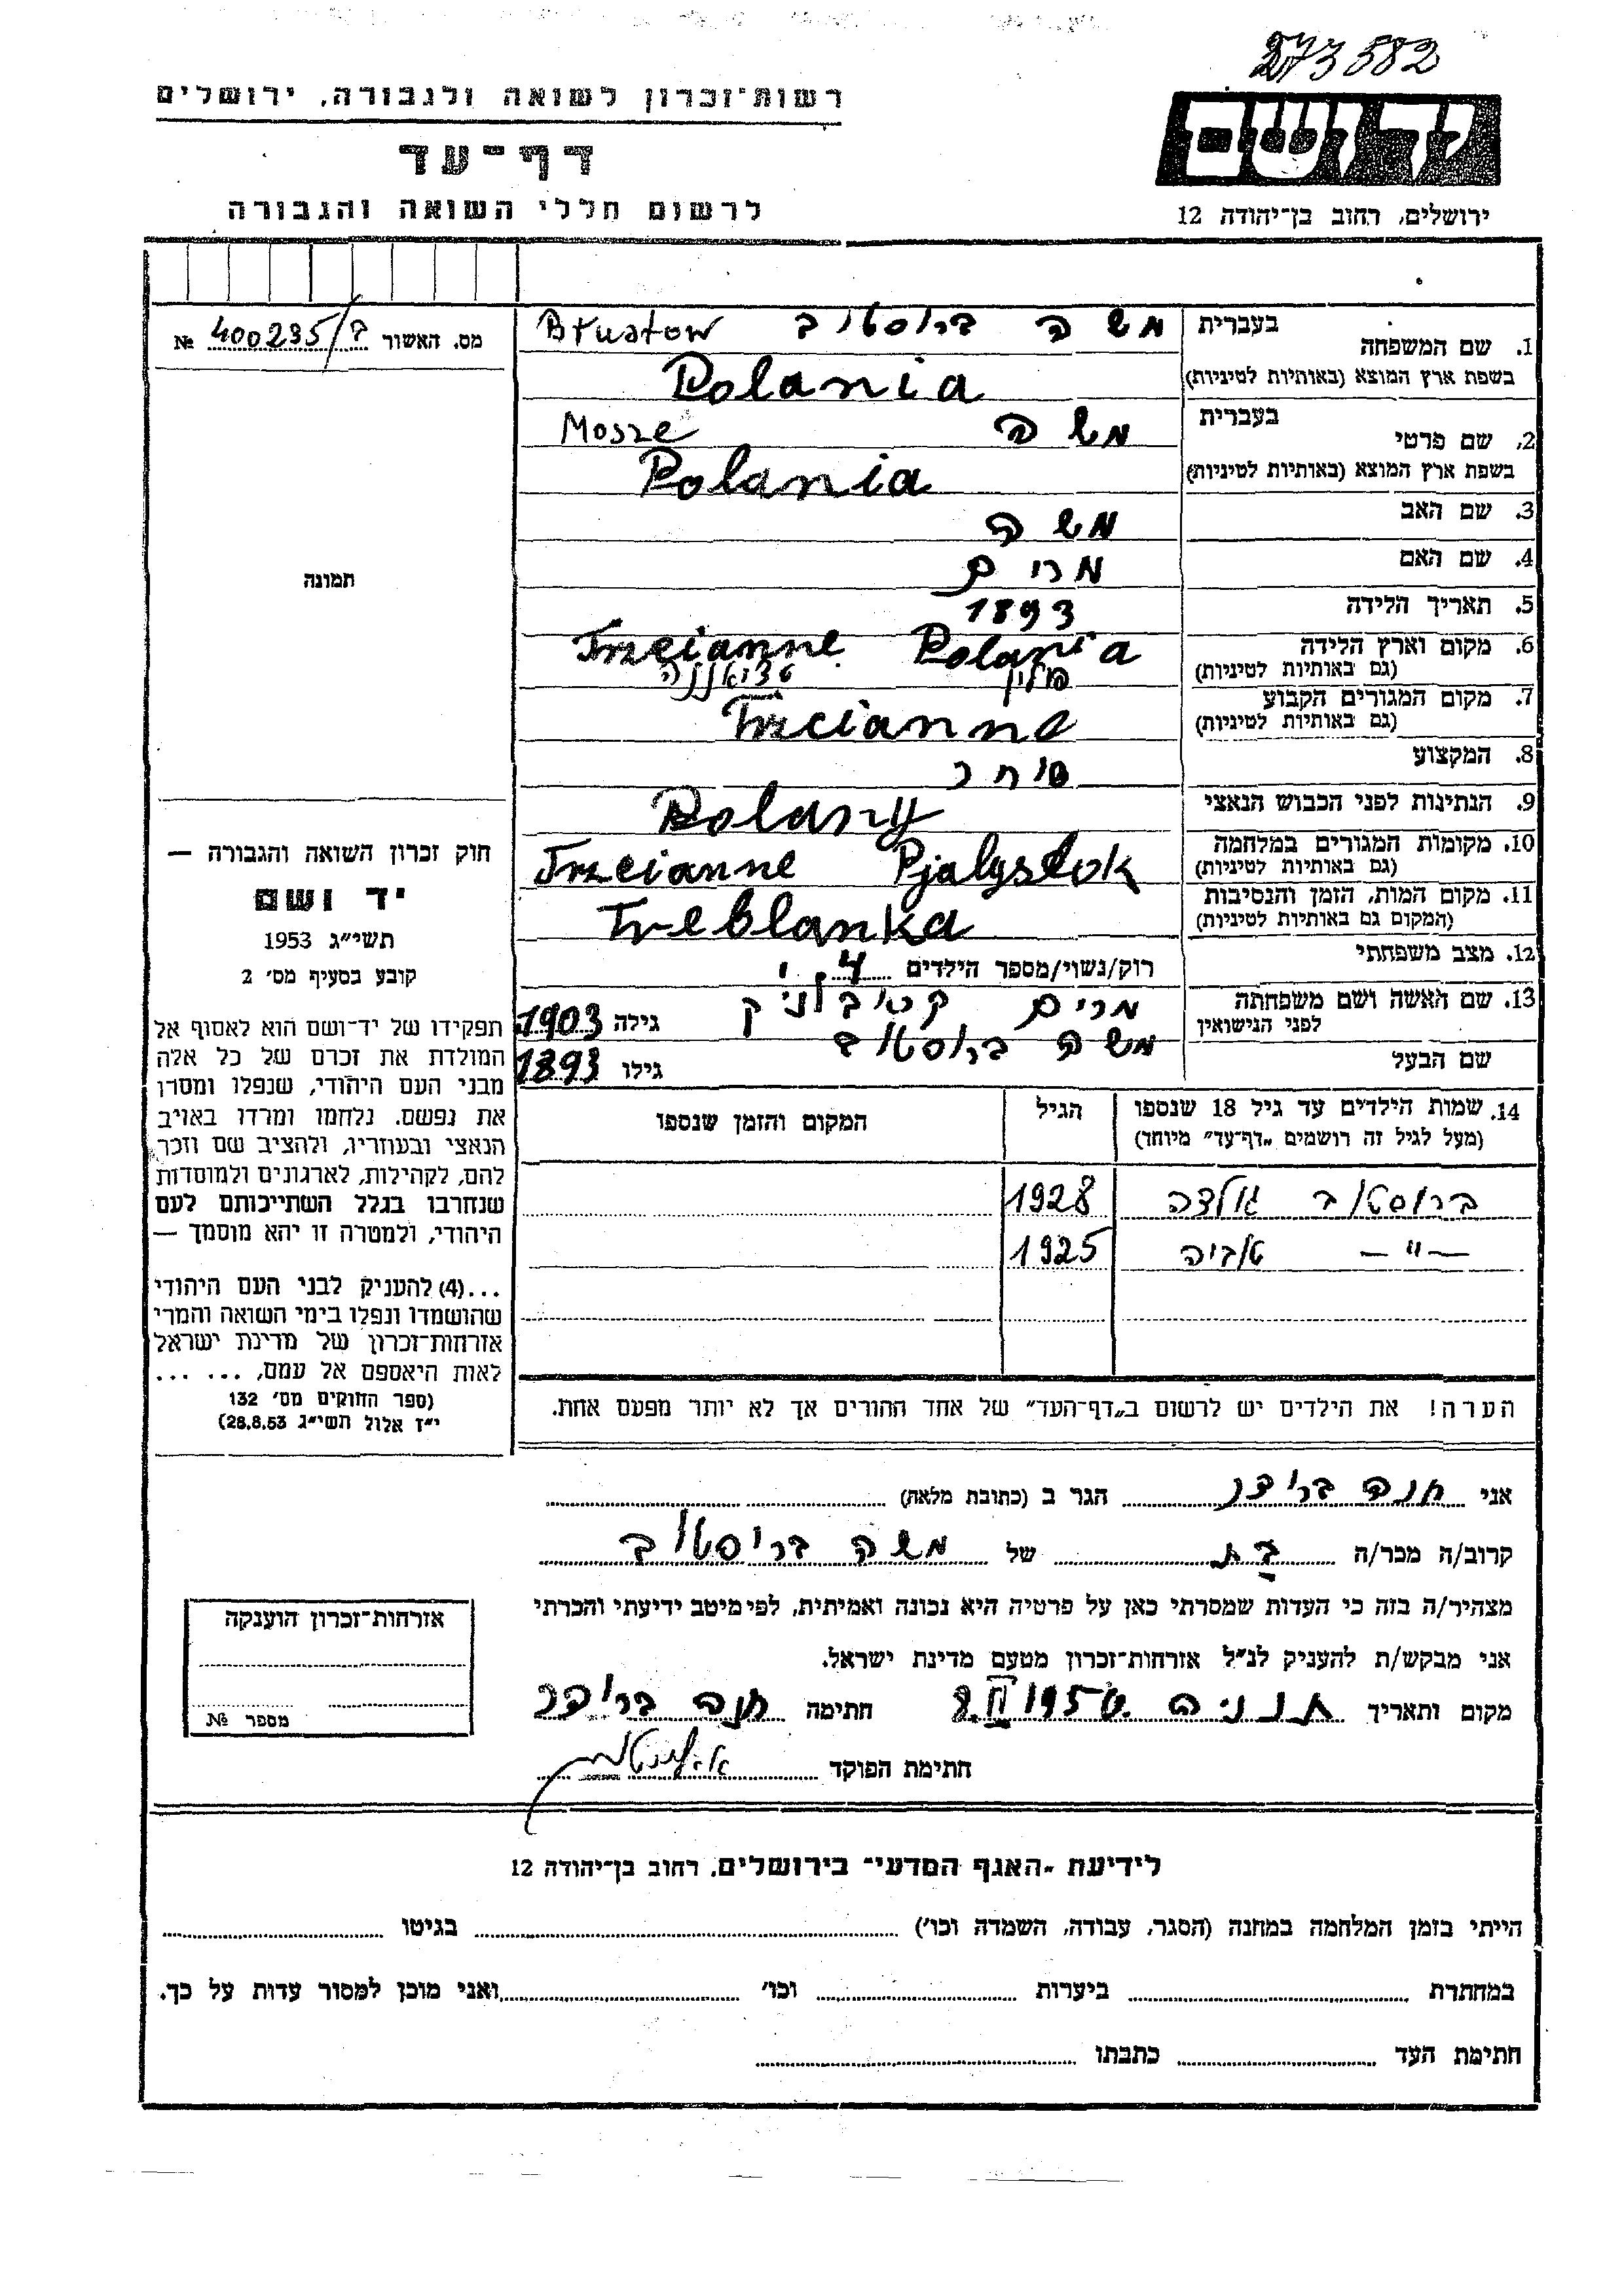 273582
רשות־זכרון לשואה ולגבורה, ירושלים
יד ושם
דף־עד
לרשום חללי השואה והגבורה
ירושלים, רחוב בן־יהודה 12
מס. האשור 400235/ב №
תמונה
חוק זכרון השואה והגבורה —
יד ושם
תשי״ג 1953
קובע בסעיף מס׳ 2
תפקידו של יד־ושם הוא לאסוף אל
המולדת את זכרם של כל אלה
מבני העם היהודי, שנפלו ומסרו
את נפשם, נלחמו ומרדו באויב
הנאצי ובעוזריו, ולהציב שם וזכר
להם, לקהילות, לארגונים ולמוסדות
שנחרבו בגלל השתייכותם לעם
היהודי, ולמטרה זו יהא מוסמך —
...(4) להעניק לבני העם היהודי
שהושמדו ונפלו בימי השואה והמרי
אזרחות־זכרון של מדינת ישראל
לאות היאספם אל עמם, ... ...
(ספר החוקים מס׳ 132
י״ז אלול תשי״ג 28.8.53)
1. שם המשפחה בעברית משה ברוסטוב Brustow
בשפת ארץ המוצא (באותיות לטיניות) Polania
2. שם פרטי בעברית משה Mosze
בשפת ארץ המוצא (באותיות לטיניות) Polania
3. שם האב משה
4. שם האם מרים
5. תאריך הלידה 1893
6. מקום וארץ הלידה Trzcianne Polania
(גם באותיות לטיניות) פולין
7. מקום המגורים הקבוע
(גם באותיות לטיניות) Trzcianne
8. המקצוע סוחר
9. הנתינות לפני הכבוש הנאצי Polany
10. מקומות המגורים במלחמה
(גם באותיות לטיניות) Trzcianne Pjalystok
11. מקום המות, הזמן והנסיבות
(המקום גם באותיות לטיניות) Treblanka
12. מצב משפחתי רוק/נשוי/מספר הילדים 4
13. שם האשה ושם משפחתה
לפני הנישואין מרים גילה 1903
שם הבעל משה ברוסטוב גילו 1893
14. שמות הילדים עד גיל 18 שנספו הגיל המקום והזמן שנספו
(מעל לגיל זה רושמים „דף־עד״ מיוחד)
ברוסטוב גולדה 1928
—״— טוביה 1925
הערה! את הילדים יש לרשום ב„דף־העד״ של אחד ההורים אך לא יותר מפעם אחת.
אני חנה הגר ב (כתובת מלאה)
קרוב/ה מכר/ה בת של משה בריסטוב
מצהיר/ה בזה כי העדות שמסרתי כאן על פרטיה היא נכונה ואמיתית, לפי מיטב ידיעתי והכרתי
אני מבקש/ת להעניק לנ״ל אזרחות־זכרון מטעם מדינת ישראל.
מקום ותאריך חתימה חנה
חתימת הפוקד
אזרחות־זכרון הוענקה
מספר №
לידיעת „האגף המדעי״ בירושלים, רחוב בן־יהודה 12
הייתי בזמן המלחמה במחנה (הסגר, עבודה, השמדה וכו׳) בגיטו
במחתרת ביערות וכו׳ ואני מוכן למסור עדות על כך.
חתימת העד כתבתו